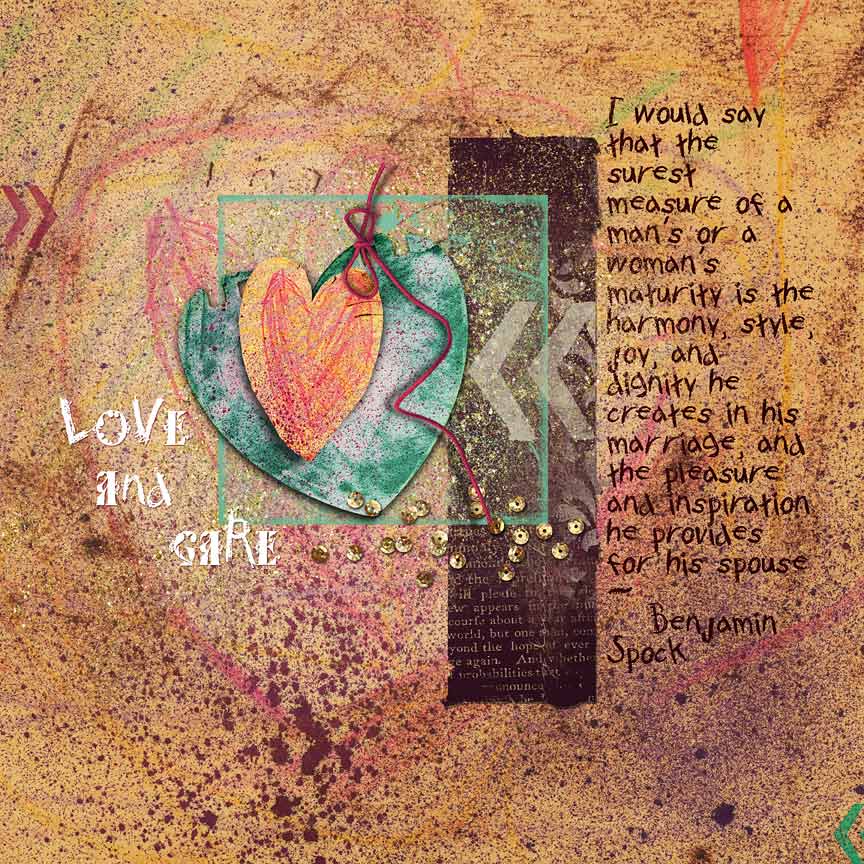 LOVE
And
CARE
I would say
that the
surest
measure of a
man's or a
woman's
maturity is the
harmony, style,
joy, and
dignity he
creates in his
marriage, and
the pleasure
and inspiration
he provides
for his spouse
–
Benjamin
Spock
will plede
appears in
course about a
world, but one
yond the hope ever
ge again. And whether
probabilities